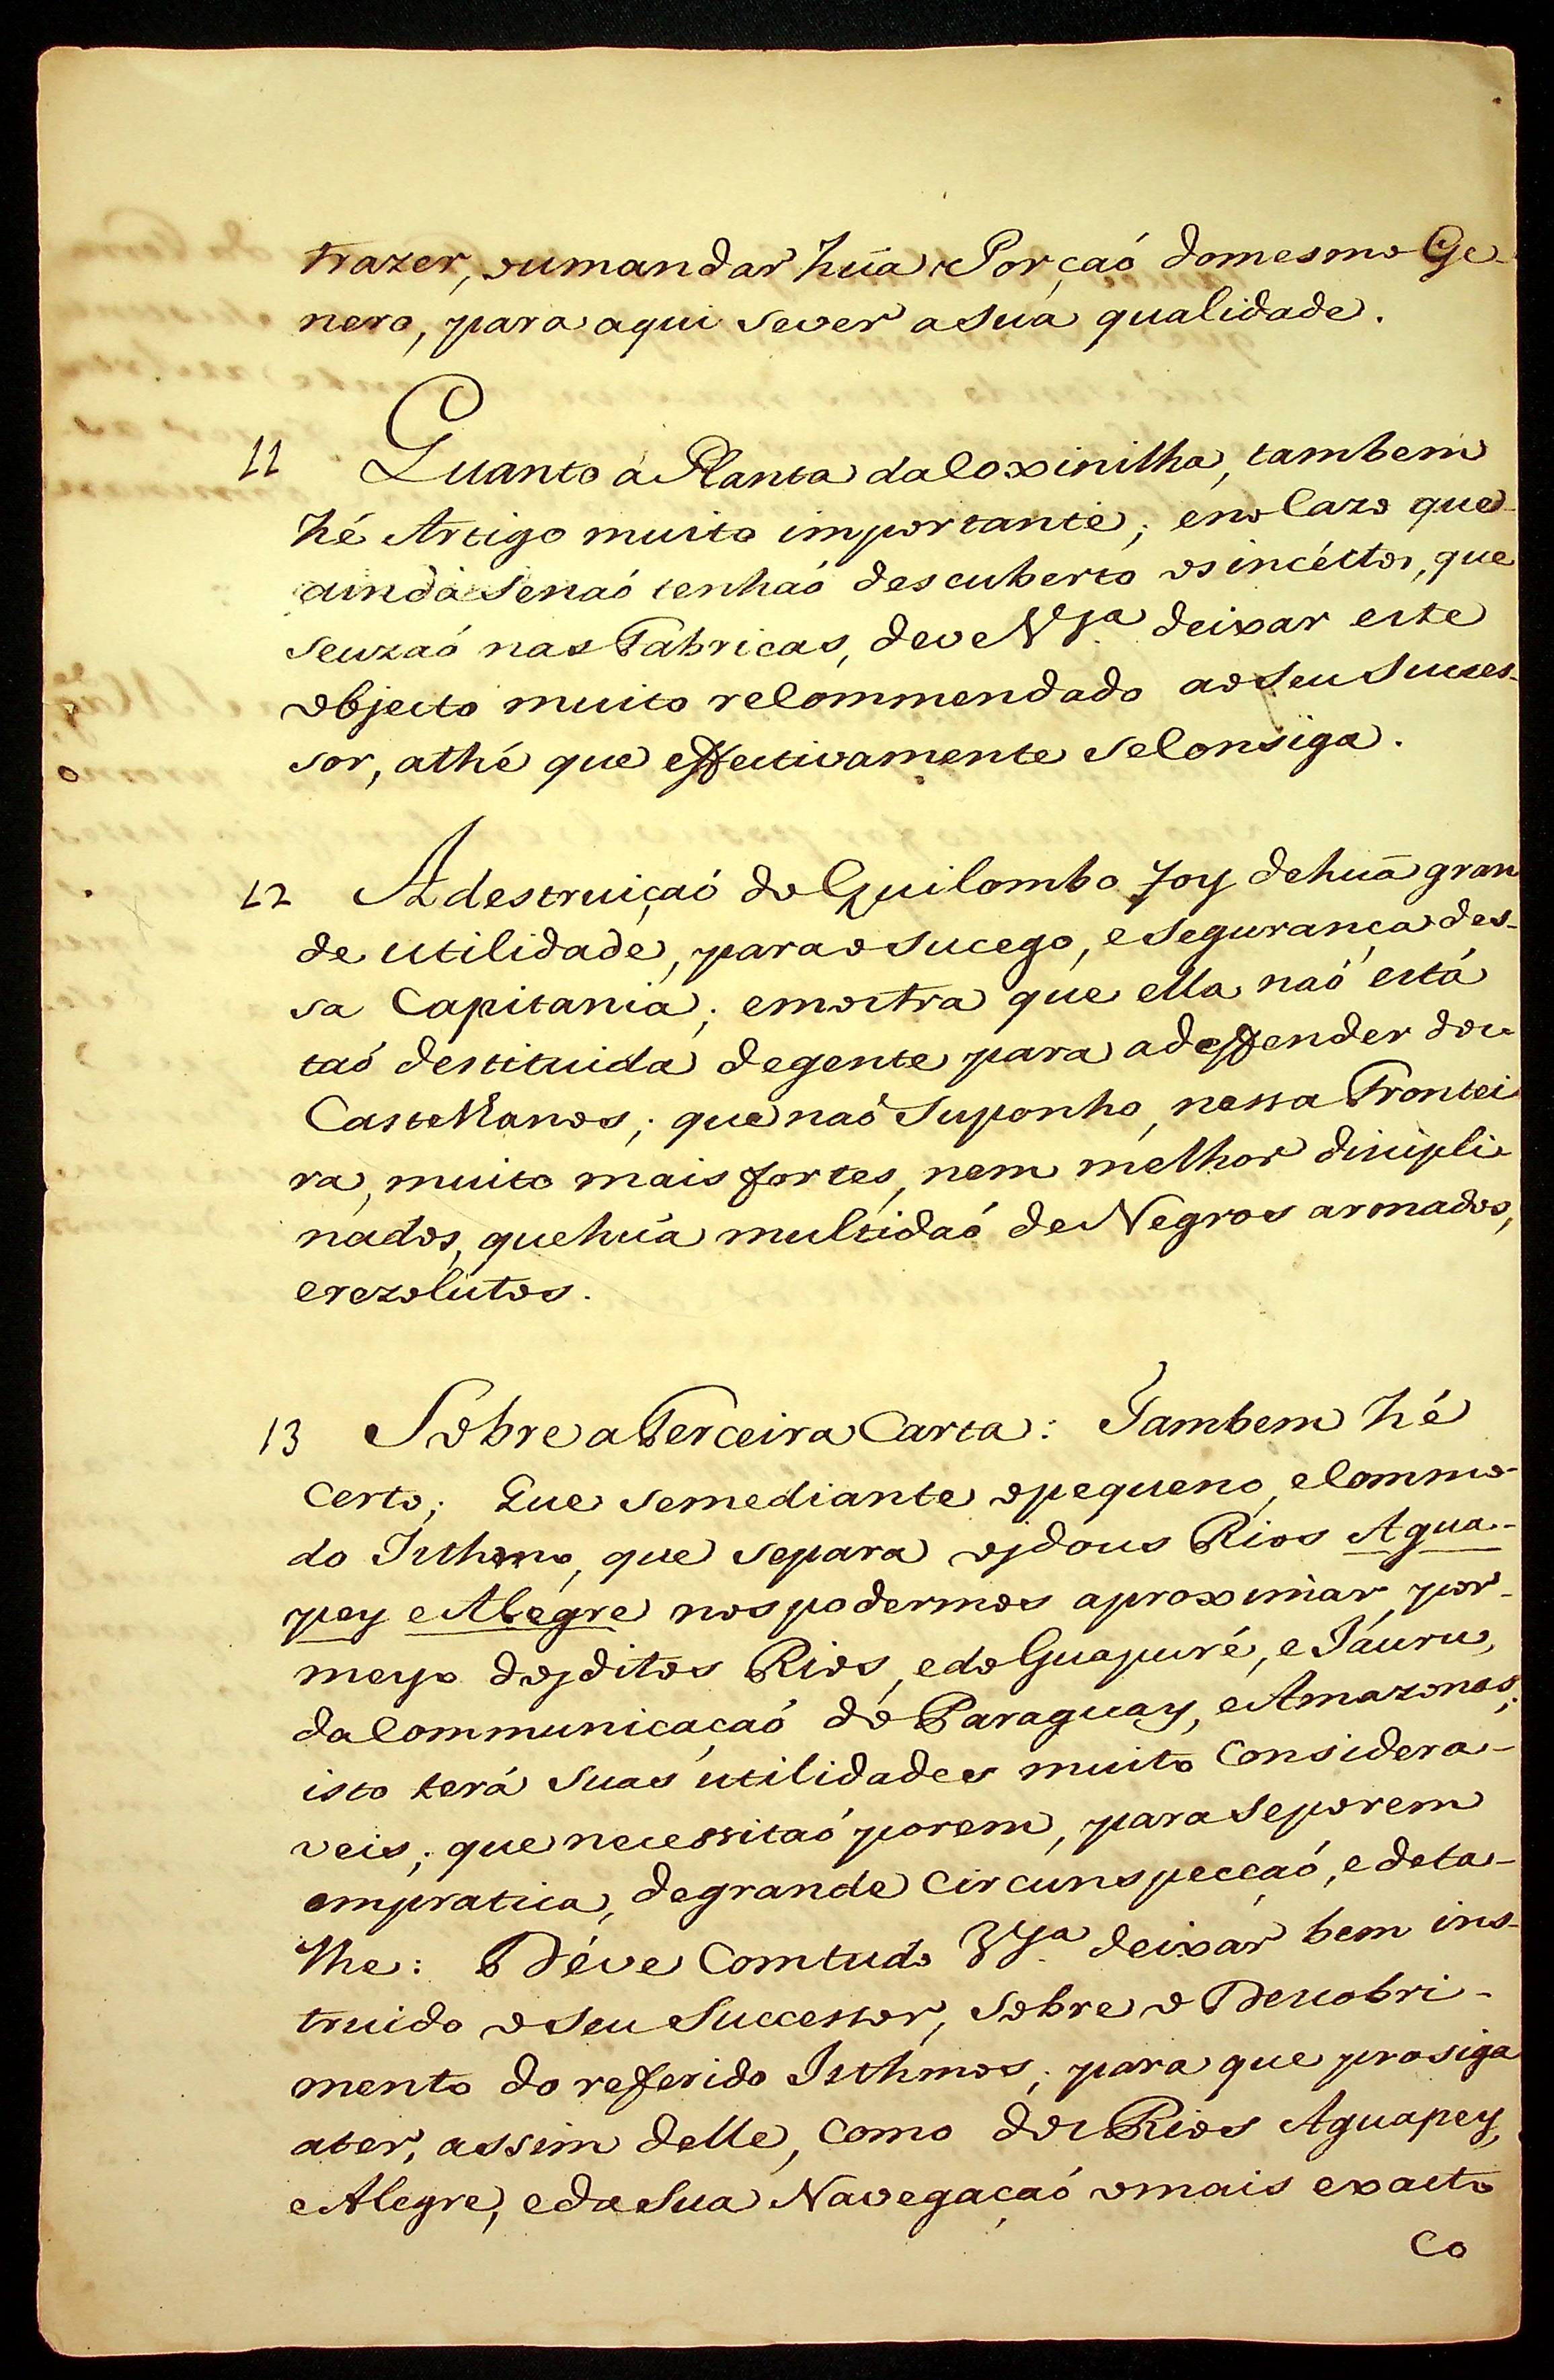 trazer, oumandar hũa Porçaõ domesmo Ge-
nero, para aqui sever asua qualidade.
11 Quanto á Planta daCoxinilha, tambem
hé Artigo muito importante; eno Cazo que
ainda senaõ tenhaõ descuberto os incéctos, que
seuzaõ nas Fabricas, deve VSª deixar este
objecto muito reCommendado aoseu Succes-
sor, athé que effectivamente seConsiga.
12 Adestruiçaõ do Quilombo foy dehuã gran
de utilidade, parao sucego, esegurança des-
sa Capitania; emostra que ella naõ está
taõ destituida degente para adeffender dos
Castelhanos; que naõ suponho, nessa Frontei
ra, muito mais fortes, nem melhor discipli
nados, quehũa multidaõ de Negros armados,
erezolutos.
13 Sobre aTerceira Carta: Tambem hé
Certo; Que semediante opequeno, eCommo-
do Isthmo, que separa osdous Rios Agua-
pey eAlegre nospodermos aproximar, por
meyo dosditos Rios, edo Guapuré, eJauru,
daCommunicaçaõ do Paraguay, eAmazonas;
isto terá suas utilidades muito Considera-
veis; que necessitaõ porem, paraseporem
empratica, degrande Circunspecçaõ, edeta-
lhe: Déve Comtudo VSª deixar bem ins-
truido oseu Successor, sobre o Descobri-
mento do refferido Isthmos; para que prosiga
ater, assim delle, Como dos Rios Aguapey,
eAlegre, edasua Navegaçaõ omais exacto
Co